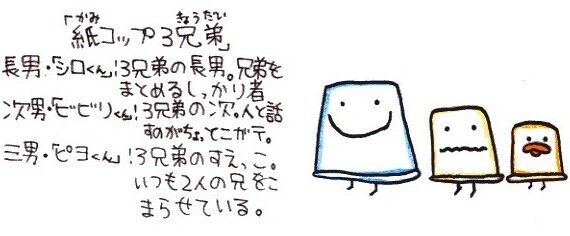 「紙コップ3兄弟」
かみ きょうだい
長男・「シロくん」!3兄弟の長男。兄弟を
まとめるしっかり者
次男・「ビビリくん」!3兄弟の次。人と話
すのがちょっとニガテ。
三男・「ピヨくん」!3兄弟のすえっこ。
いつも2人の兄をこ
まらせている。